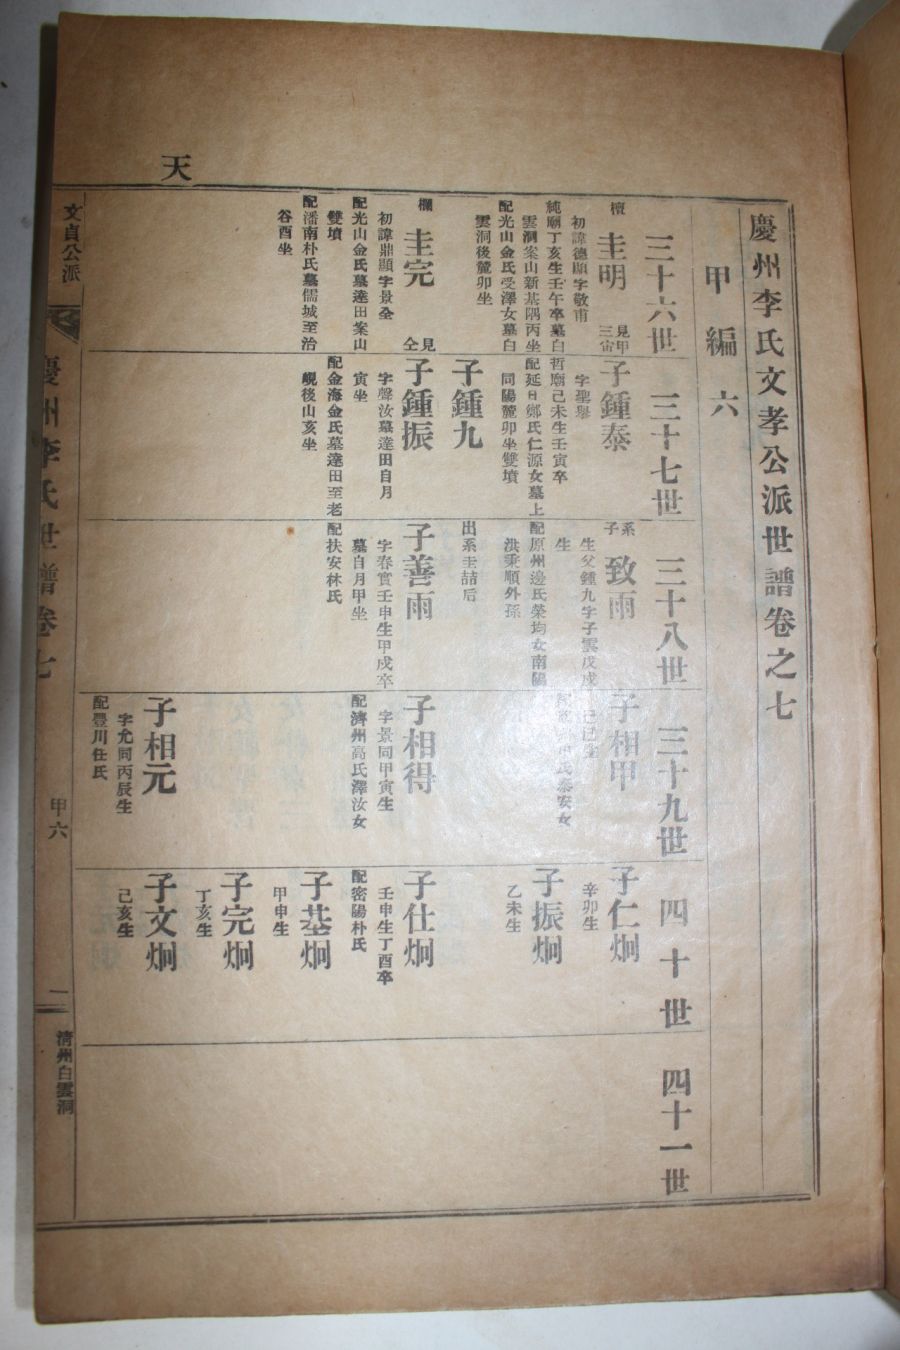 天
慶州李氏文孝公派世譜卷之七
甲編 六
三十六世
三十七世
三十八世
三十九世
四十世
四十一世
檀
圭明
見甲
三宙
初諱德顯字敬甫
純廟丁亥生壬午卒墓白
雲洞案山新基隅丙坐
配光山金氏受澤女墓白
雲洞後麓卯坐
欄
圭完
見
仝
初諱鼎顯字景全
配光山金氏墓達田案山
雙墳
配潘南朴氏墓儒城至治
谷酉坐
子鍾泰
字聖舉
哲廟己未生壬寅卒
配延日鄭氏仁源女墓上
同陽麓卯坐雙墳
子鍾九
子鍾振
字聲汝墓達田自月
寅坐
配金海金氏墓達田至老
峴後山亥坐
系子
致雨
生父鍾九字子雲戊戌
生
配原州邊氏榮均女南陽
洪秉順外孫
出系圭喆后
子善雨
字春實壬申生甲戌卒
墓自月甲坐
配扶安林氏
子相甲
氏泰安女
子相得
字景同甲寅生
配濟州高氏澤汝女
子相元
字允同丙辰生
配豐川任氏
子仁炯
辛卯生
子振炯
乙未生
子仕炯
壬申生丁酉卒
配密陽朴氏
子基炯
甲申生
子完炯
丁亥生
子文炯
己亥生
文貞公派
慶州李氏世譜卷七
甲六
一
清州白雲洞